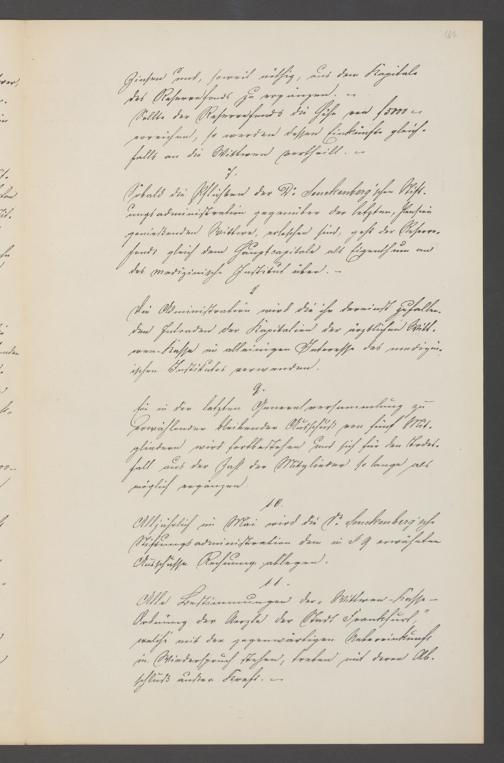 Zinsen und, soweit nöthig, aus dem Kapitale
des Reservefonds zu ergänzen. –
Sollte der Reservefonds die Höhe von f 5000 –
erreichen, so werden dessen Einkünfte gleich-
falls an die Wittwen vertheilt. –
7.
Sobald die Pflichten der Dr. Senckenberg'schen Stift-
ungsadministration gegenüber der letzten, Pension
genießenden Wittwe, erloschen sind, geht der Reserve-
fonds gleich dem Hauptcapitale als Eigenthum an
das medizinische Institut über. –
8
Die Administration wird die ihr dereinst zufallen-
den Intraden der Kapitalien der ärztlichen Witt-
wen-Kasse im alleinigen Interesse des medizin-
ischen Institutes verwenden.
9.
Ein in der letzten Generalversammlung zu
erwählender bleibender Ausschuß von fünf Mit-
gliedern wird fortbestehen und sich für den Todes-
fall aus der Zahl der Mitglieder so lange als
möglich ergänzen
10.
Alljährlich im Mai wird die Dr. Senckenberg'sche
Stiftungsadministration dem in § 9 erwähnten
Ausschusse Rechnung ablegen.
11.
Alle Bestimmungen der „Wittwen-Kasse-
Ordnung der Aerzte der Stadt Frankfurt,"
welche mit der gegenwärtigen Uebereinkunft
in Widerspruch stehen, treten mit deren Ab-
schluß außer Kraft. –